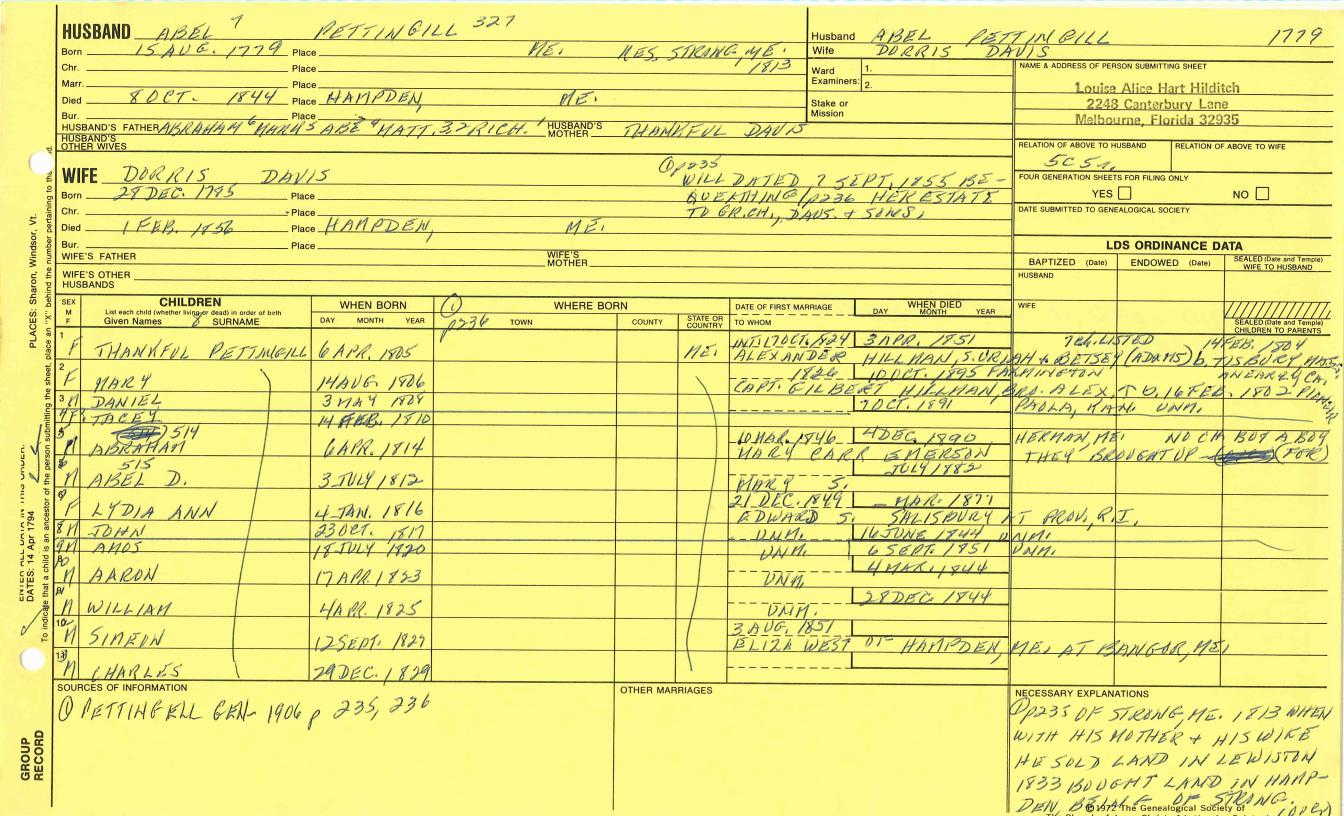 HUSBAND ABEL 7 PETTINGILL 327
Born 15 AUG. 1779 Place ME. RES. STRONG, ME. 1813
Chr. Place
Marr. Place
Died 8 OCT. 1844 Place HAMPDEN, ME.
Bur. Place
HUSBAND'S FATHER ABRAHAM 6 MARK 5 ABE 4 MATT. 3,2 RICH. 1 HUSBAND'S MOTHER THANKFUL DAVIS
HUSBAND'S OTHER WIVES
Husband ABEL PETTINGILL 1779
Wife DORRIS DAVIS
Ward Examiners: 1.
2.
Stake or Mission
NAME & ADDRESS OF PERSON SUBMITTING SHEET
Louise Alice Hart Hilditch
2248 Canterbury Lane
Melbourne, Florida 32935
RELATION OF ABOVE TO HUSBAND RELATION OF ABOVE TO WIFE
5C 5r.
FOUR GENERATION SHEETS FOR FILING ONLY
YES NO
DATE SUBMITTED TO GENEALOGICAL SOCIETY
WIFE DORRIS DAVIS
Born 28 DEC. 1785 Place
Chr. Place
Died 1 FEB. 1856 Place HAMPDEN, ME.
Bur. Place
① p235
WILL DATED 7 SEPT. 1855 BE-
QUEATHING p236 HER ESTATE
TO GR.CH., DAUS. + SONS.
WIFE'S FATHER WIFE'S MOTHER
WIFE'S OTHER HUSBANDS
LDS ORDINANCE DATA
BAPTIZED (Date) ENDOWED (Date) SEALED (Date and Temple) WIFE TO HUSBAND
HUSBAND
WIFE
SEALED (Date and Temple) CHILDREN TO PARENTS
SEX M F CHILDREN WHEN BORN ① WHERE BORN DATE OF FIRST MARRIAGE WHEN DIED
List each child (whether living or dead) in order of birth
Given Names 8 SURNAME DAY MONTH YEAR p236 TOWN COUNTY STATE OR COUNTRY TO WHOM DAY MONTH YEAR
1 INT. 17 OCT. 1824 3 APR. 1851 7 CH. LISTED 14 FEB. 1804
F THANKFUL PETTINGILL 6 APR. 1805 ME. ALEXANDER HILLMAN, S. URIAH + BETSEY (ADAMS) b. TISBURY, MASS.
2 1826 10 OCT. 1895 FARMINGTON
F MARY 14 AUG. 1806 CAPT. GILBERT HILLMAN, BRO. ALEX. ↑ b. 16 FEB. 1802
3 M DANIEL 3 MAY 1808 7 OCT. 1891 PAOLA, KAN. UNM.
4 F. TACEY 14 FEB. 1810
5 514 10 MAR. 1846 4 DEC. 1890 HERMAN, ME. NO CH BUT A BOY
M ABRAHAM 6 APR. 1814 MARY CARR EMERSON THEY BROUGHT UP (FOR)
515 JULY 1882
M ABEL D. 3 JULY 1812 MARY S.
21 DEC. 1849 _ MAR. 1877
F LYDIA ANN 4 JAN. 1816 EDWARD S. SALISBURY AT PROV., R.I.
8 M JOHN 23 OCT. 1817 UNM. 16 JUNE 1844 UNM.
9 M AMOS 18 JULY 1820 UNM. 6 SEPT. 1851 UNM.
4 MAR. 1844
M AARON 17 APR. 1823 UNM.
28 DEC 1844
M WILLIAM 4 APR. 1825 UNM.
3 AUG. 1851
M SIMEON 12 SEPT. 1827 ELIZA WEST OF HAMPDEN, ME. AT BANGOR, ME.
13
M CHARLES 29 DEC. 1829
SOURCES OF INFORMATION
① PETTINGELL GEN- 1906 p 235, 236
OTHER MARRIAGES
NECESSARY EXPLANATIONS
① p235 OF STRONG, ME. 1813 WHEN
WITH HIS MOTHER + HIS WIFE
HE SOLD LAND IN LEWISTON
1833 BOUGHT LAND IN HAMP-
DEN, BEING OF STRONG.
©1972 The Genealogical Society of (OVER)
PLACES: Sharon, Windsor, Vt.
ENTER ALL DATA IN THIS ORDER:
DATES: 14 Apr 1794
To indicate that a child is an ancestor of the person submitting the sheet, place an "X" behind the number pertaining to
GROUP RECORD